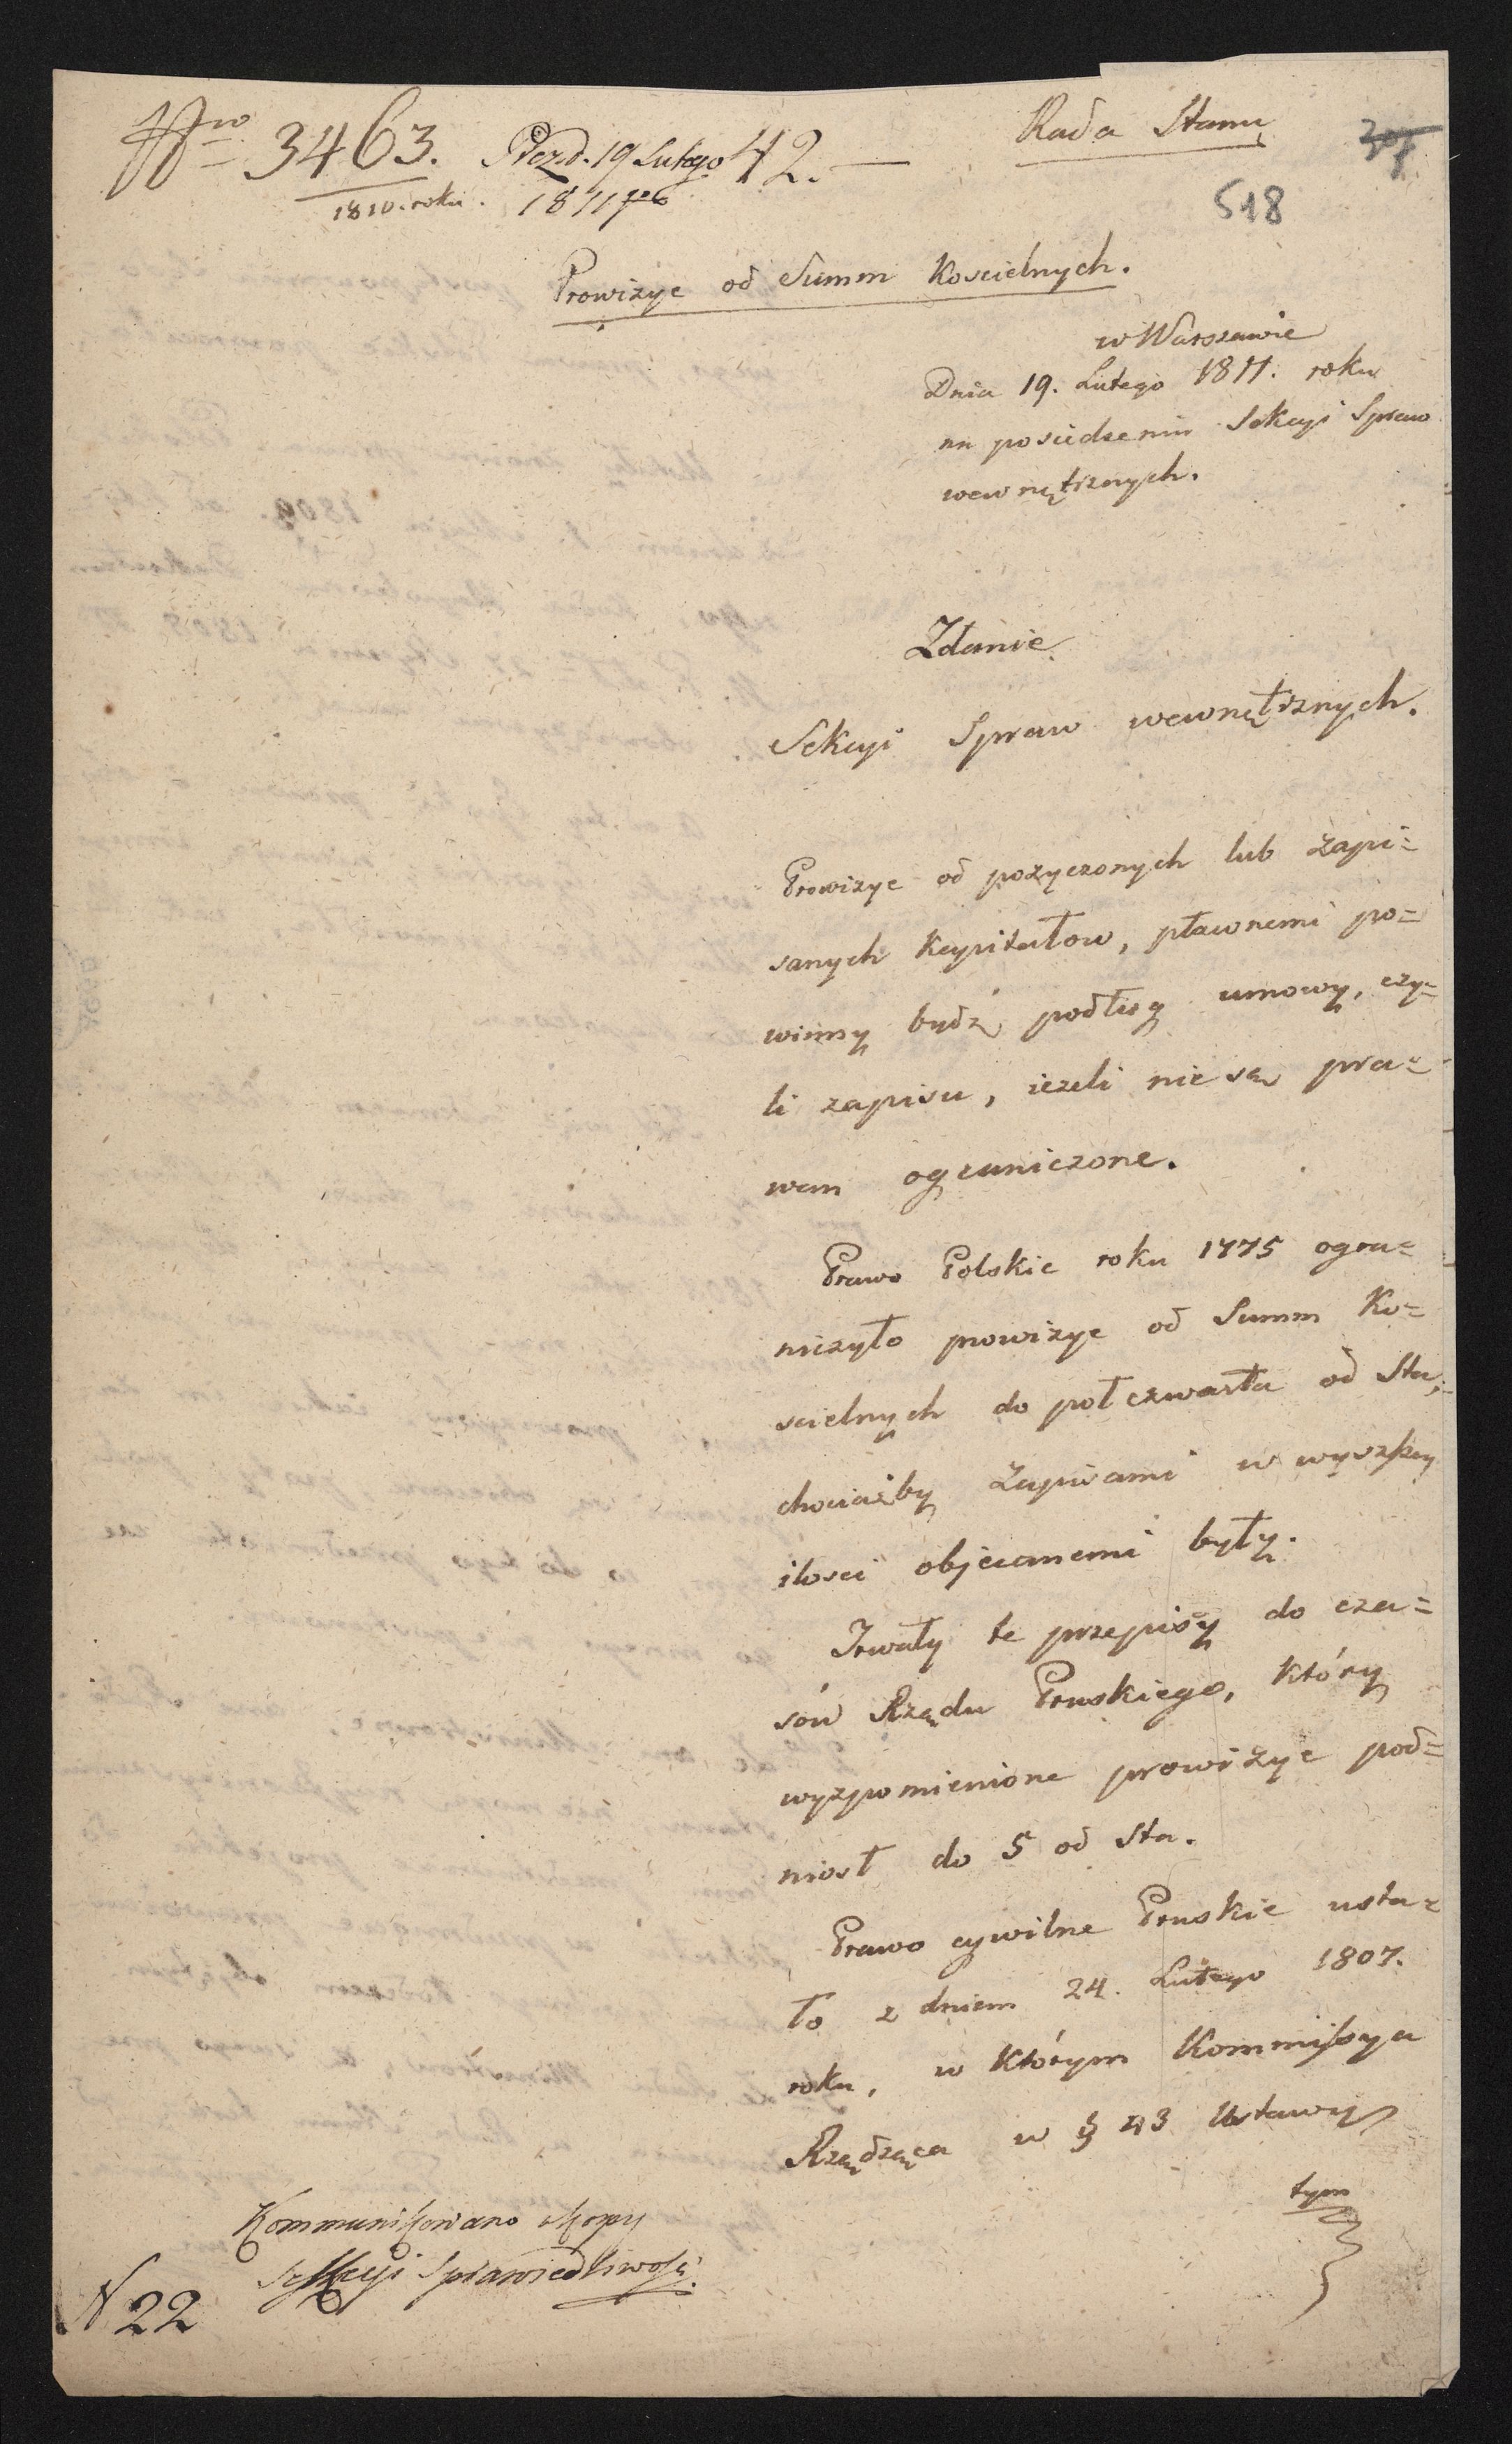 Nro 3463. Prezd. 19 Lutego 42. — Rada Stanu
1810. roku. 1811go 518
Prowizye od Summ Koscielnych.
w Warszawie
Dnia 19. Lutego 1811. roku
na posiedzeniu Sekcyi Spraw
wewnętrznych.
Zdanie
Sekcyi Spraw wewnętrznych.
Prowizye od pozyczonych lub zapi=
sanych Kapitałow, pławnemi po=
winny bydź podług umowy, czy=
li zapisu, iezeli nie są pra=
wem ograniczone.
Prawo Polskie roku 1775 ogra=
niczyło prowizye od Summ Ko=
scielnych do poł czwarta od Sta;
chociażby Zapisami w wyzszey
ilosci objecanemi były.
Trwały te przepisy do cza=
sów Rządu Pruskiego, który
wyzpomienione prowizye pod=
niosł do 5 od Sta.
Prawo cywilne Pruskie usta=
ło z dniem 24. Lutego 1807.
roku, w którym Kommissya
Rządząca w § 43 Ustawy
tym
Kommunikowano
Sekcyi Sprawiedliwości.
N 22